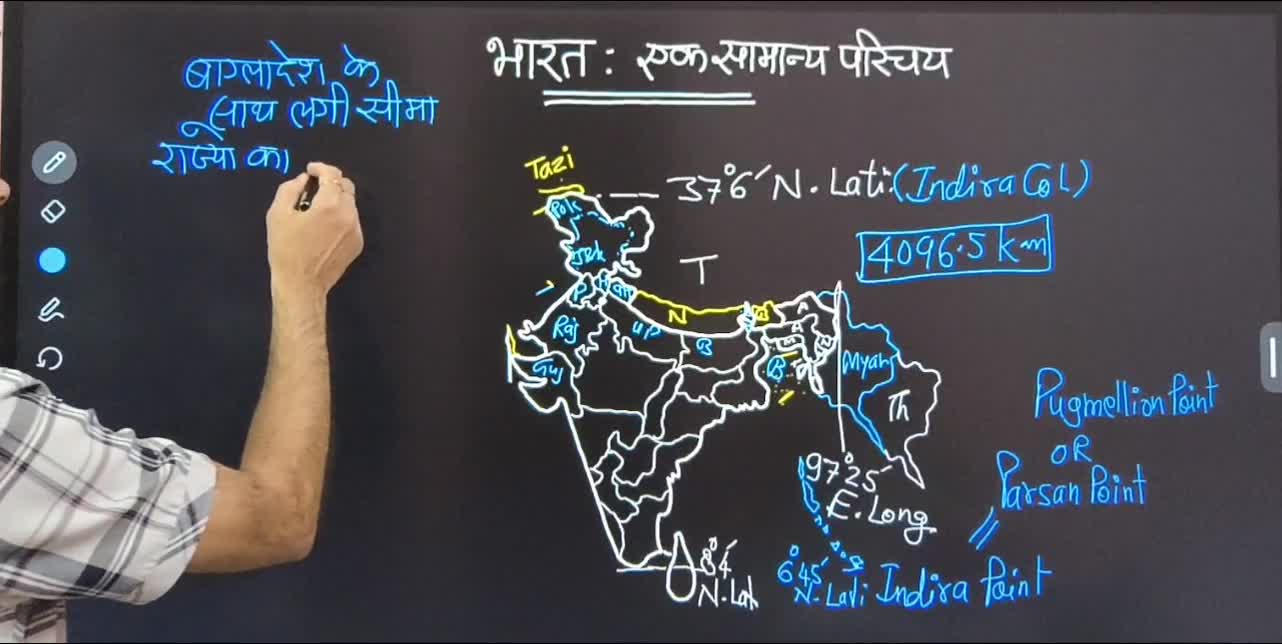 भारत : एक सामान्य परिचय
बाग्लादेश के
साथ लगी सीमा
राज्यो का
Tazi
37°6´ N. Lati. (Indira Col)
4096.5 km
PoK
J&K
T
P
Raj
UP
N
B
Guj
B
Myan
Th
97°25´
E. Long
8°4´
N. Lat
6°45´
N. Lati
Indira Point
Pugmellion Point
OR
Parsan Point